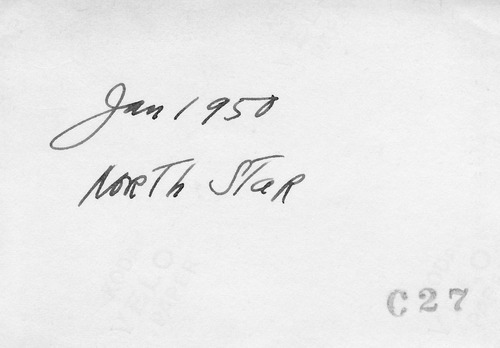 Jan 1950
NORTh STaR
C27